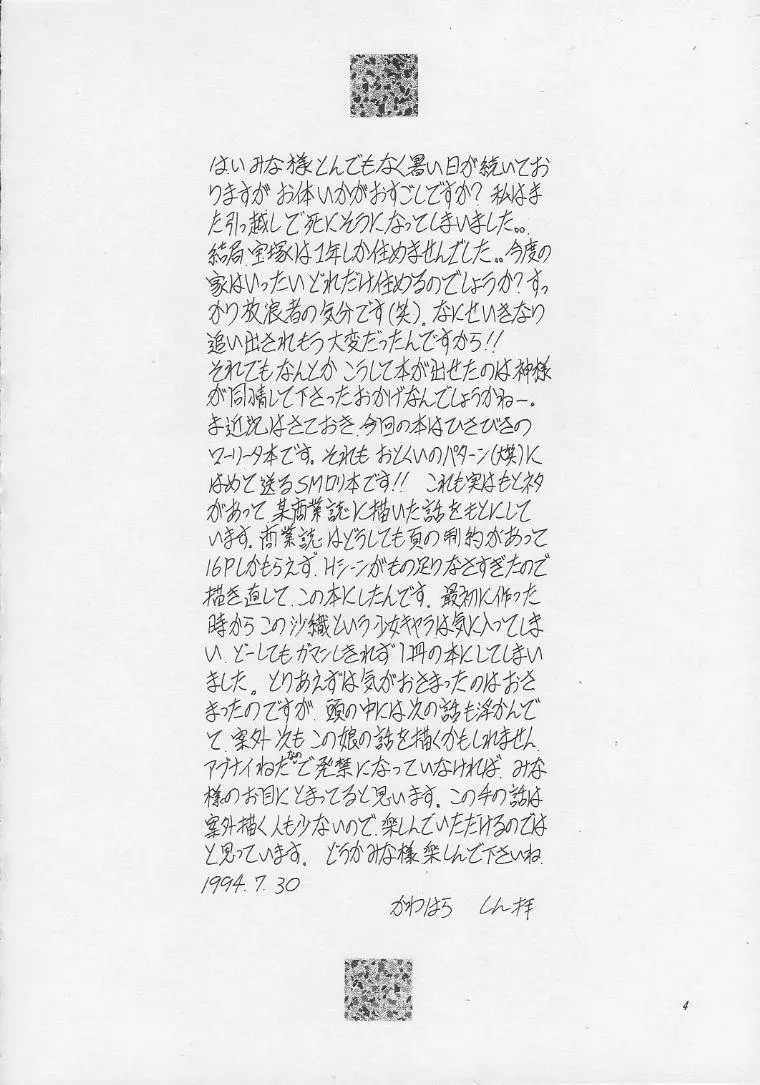 はいみな様とんでもなく暑い日が続いてお
りますが お体いかがおすごしですか? 私はま
た引っ越しで死にそうになってしまいました。。
結局、宝塚は1年しか住めませんでした。。今度の
家はいったいどれだけ住めるのでしょうか?すっ
かり放浪者の気分です(笑)。なにせいきなり
追い出されもう大変だったんですから!!
それでもなんとか こうして本が出せたのは神様
が同情して下さったおかげなんでしょうかねー。
ま近況はさておき、今回の本はひさびさの
ローリータ本です。それも おとくいのパターン(大笑)に
はめて送るSMロリ本です!! これも実はもとネタ
があって 某商業誌に描いた話をもとにして
います。商業誌はどうしても頁の制約があって
16Pしかもらえず、Hシーンがもの足りなさすぎたので
描き直して、この本にしたんです。最初に作った
時から この沙織という少女キャラは気に入ってしま
い、どーしてもガマンしきれず1冊の本にしてしまい
ました。とりあえずは気がおさまったのはおさ
まったのですが、頭の中には次の話も浮かんで
て、案外 次も この娘の話を描くかもしれません。
アブナイねたなので発禁になっていなければ、みな
様のお目にとまってると思います。この手の話は
案外描く人も少ないので、楽しんでいただけるのでは
と思っています。 どうかみな様 楽しんで下さいね
1994.7.30
かわはら しん拝
4